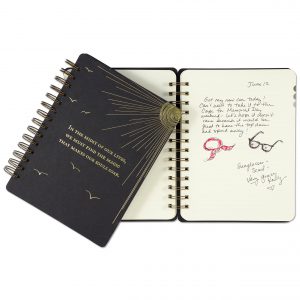 IN THE MIDST OF OUR LIVES,
WE MUST FIND THE MAGIC
THAT MAKES OUR SOULS SOAR.
June 12
Got my new car today!
Can't wait to take it to the
Cape for Memorial Day
weekend. Let's hope it doesn't
rain because it would be
sad to have the top down
and
away!
Sunglasses
Scarf
Very